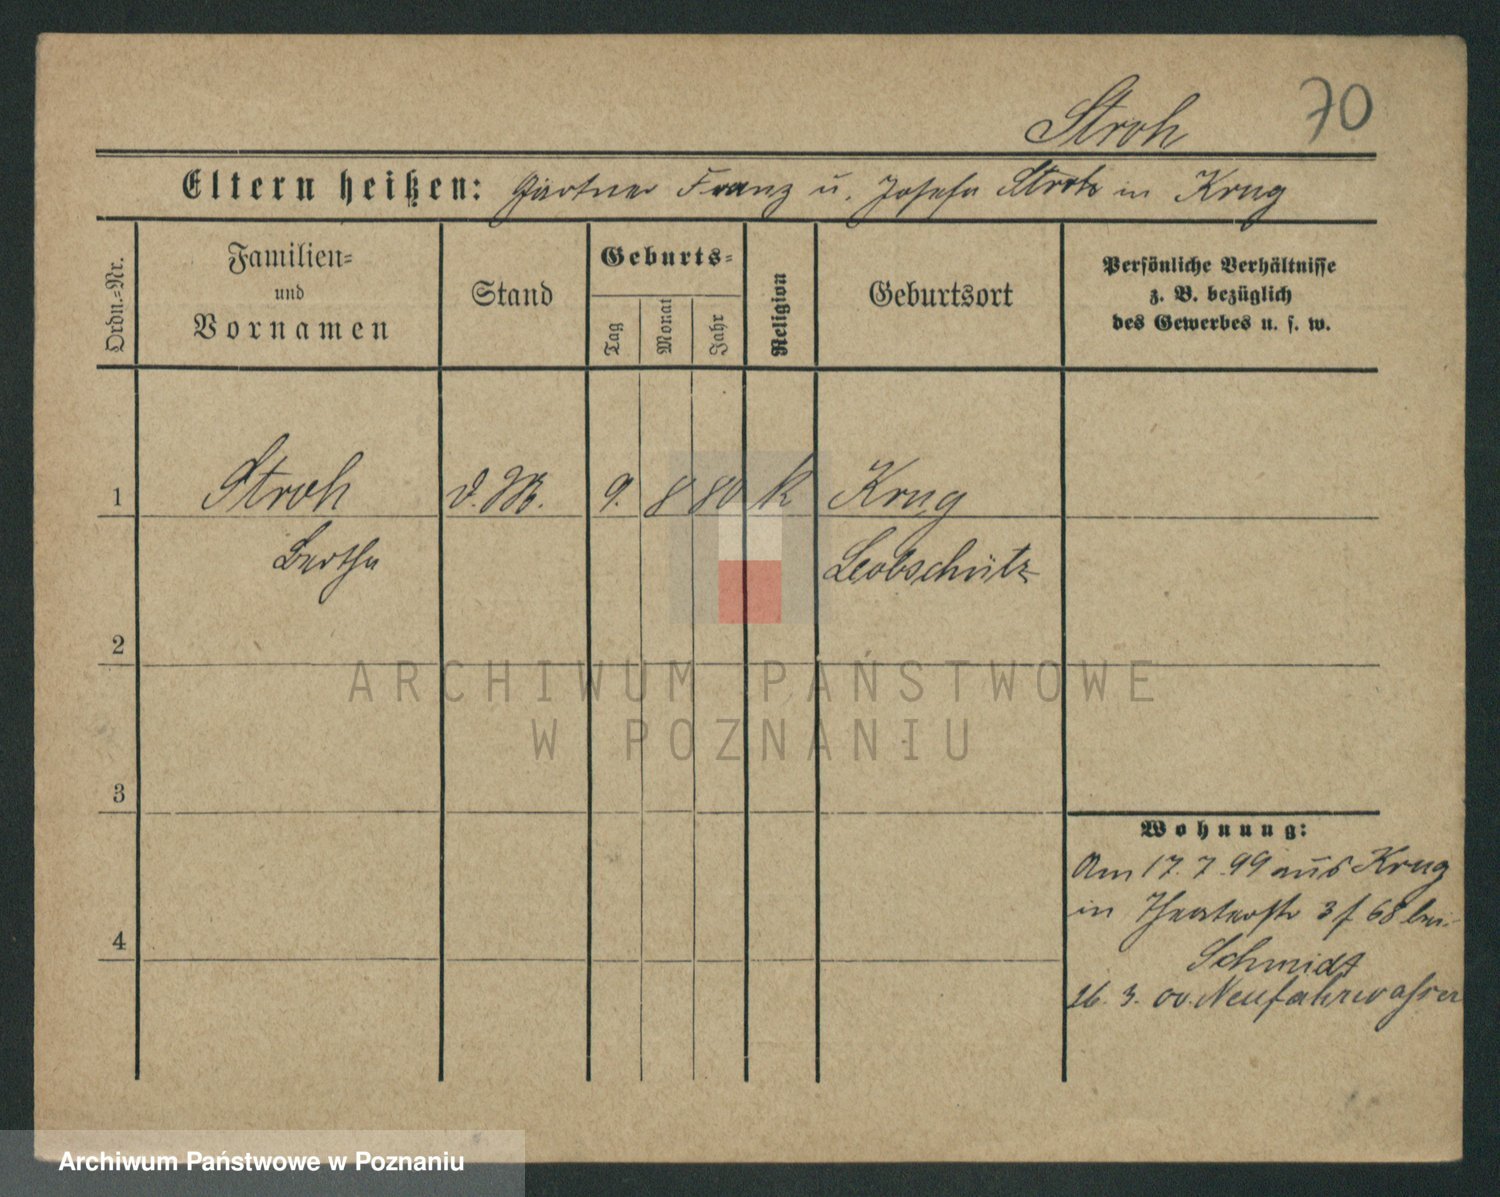 70
Stroh
Eltern heißen: Gärtner Franz u. Josefa Stroh in Krug
Ordn.=Nr.
Familien=
und
Vornamen
Stand
Geburts=
Tag
Monat
Jahr
Religion
Geburtsort
Persönliche Verhältnisse
z. B. bezüglich
des Gewerbes u. s. w.
1 Stroh d. M. 9. 8 80 k Krug
Bertha Leobschütz
2
3
4
Wohnung:
Am 17. 7. 99 aus Krug
in Theaterstr 3 f 68 bei
Schmidt
26. 3. 00. Neufahrwasser
ARCHIWUM PAŃSTWOWE
W POZNANIU
Archiwum Państwowe w Poznaniu